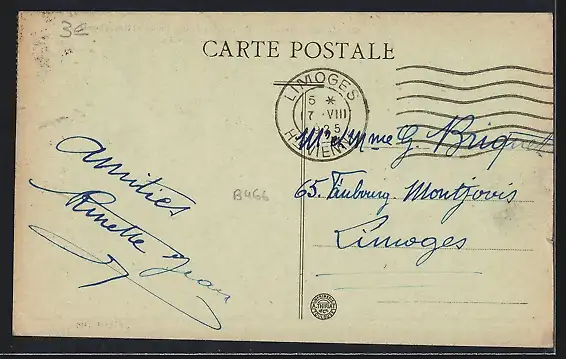 3€
CARTE POSTALE
LIMOGES
5 *
7 · VIII
25
Hte VIENNE
Mr & Mme G. Briquet
65. Faubourg Montjovis
Limoges
Amitiés
Ginette Jean
B466